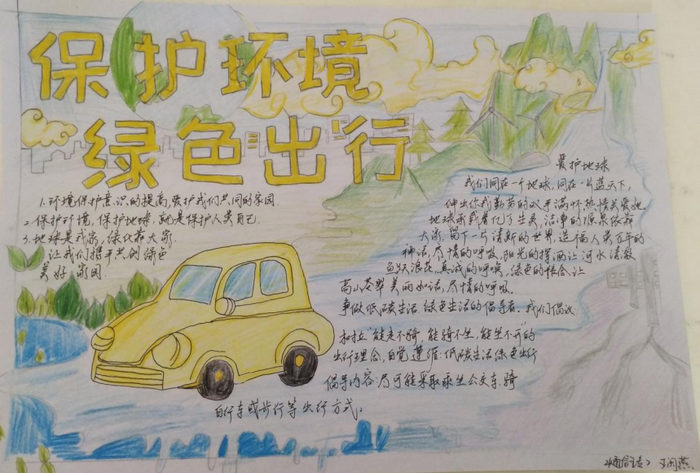 保护环境
绿色出行
1.环境保护意识的提高,爱护我们共同的家园.
2.保护环境,保护地球,就是保护人类自己.
3.地球是我家,绿化靠大家.
让我们携手共创绿色
美好家园
爱护地球
我们同在一个地球,同在一片蓝天下,
伸出你我勤劳的双手满怀热情关爱她
地球承载着亿万生灵 洁净的源泉依靠
大家,留下一片清新的世界,造福人类万年的
神话,尽情的呼吸,阳光的挥洒让河水清澈
真诚的呼唤,绿色的
高山苍翠 美丽 尽情的呼吸.
争做低碳生活 绿色生活的倡导者,我们倡议
树立"能走不骑,能骑不坐,能坐不开"的
出行理念,自觉遵循.低碳生活绿色出行
倡导内容.尽可能采取乘坐公交车,骑
自行车或步行等出行方式。